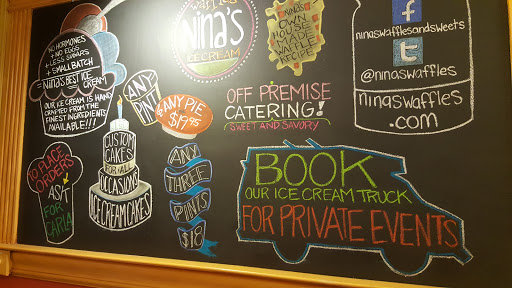 NO HORMONES
+ NO EGGS
+ LESS SUGARS
+ SMALL BATCH
= NINA'S BEST ICE CREAM
OUR ICE CREAM IS HAND
CRAFTED FROM THE
FINEST INGREDIENTS
AVAILABLE!!!
waffles
NINA'S
ICE CREAM
NINA'S
OWN
HOUSE
MADE
WAFFLE
RECIPE
ninaswafflesandsweets
@ninaswaffles
ninaswaffles
.com
ANY
PINT
ANY PIE
$19.95
OFF PREMISE
CATERING!
SWEET AND SAVORY
TO PLACE
ORDERS
ASK
FOR
CARLA
CUSTOM
CAKES
FOR ALL
OCCASIONS!
ICE CREAM CAKES
ANY
THREE
PINTS
$18
BOOK
OUR ICE CREAM TRUCK
FOR PRIVATE EVENTS